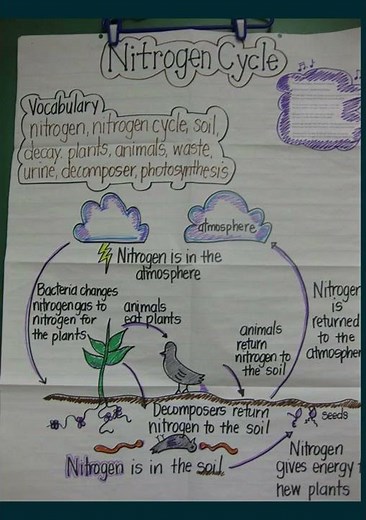 Nitrogen Cycle
Vocabulary
nitrogen, nitrogen cycle, soil,
decay, plants, animals, waste,
urine, decomposer, photosynthesis
atmosphere
Nitrogen is in the
atmosphere
Bacteria changes
nitrogen gas to
nitrogen for
the plants
animals
eat plants
animals
return
nitrogen to
the soil
Nitrogen
is
returned
to the
atmospher
Decomposers return
nitrogen to the soil
seeds
Nitrogen is in the soil
Nitrogen
gives energy
new plants